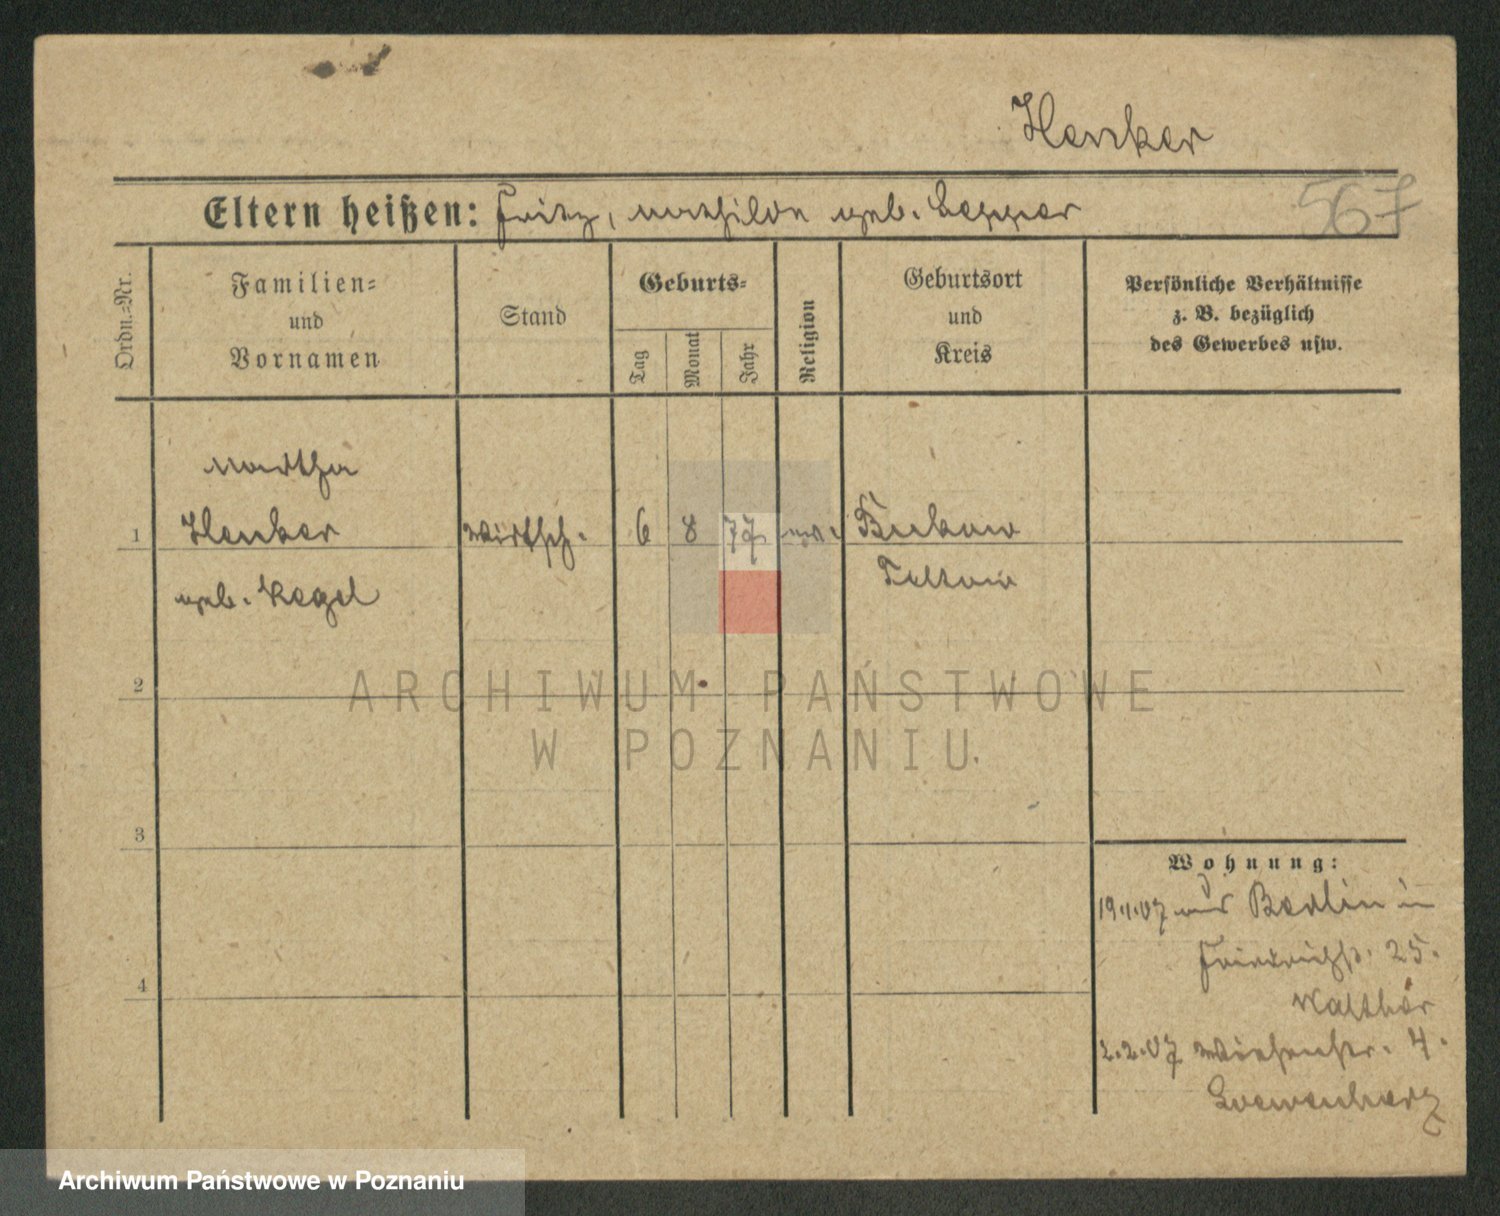 Henker
567
Eltern heißen: Fritz, Mathilde geb. Lepper
Ordn.=Nr.
Familien=
und
Vornamen
Stand
Geburts=
Tag
Monat
Jahr
Religion
Geburtsort
und
Kreis
Persönliche Verhältnisse
z. B. bezüglich
des Gewerbes usw.
Martha
1 Henker Wirtsch. 6 8 77 ev. Buckow
geb. Kegel Teltow
2
ARCHIWUM PAŃSTWOWE
W POZNANIU
3
Wohnung:
19.1.07 aus Berlin in
Friedrichstr. 25.
4
2.2.07 Wiesenstr. 4.
Loewenherz
Archiwum Państwowe w Poznaniu